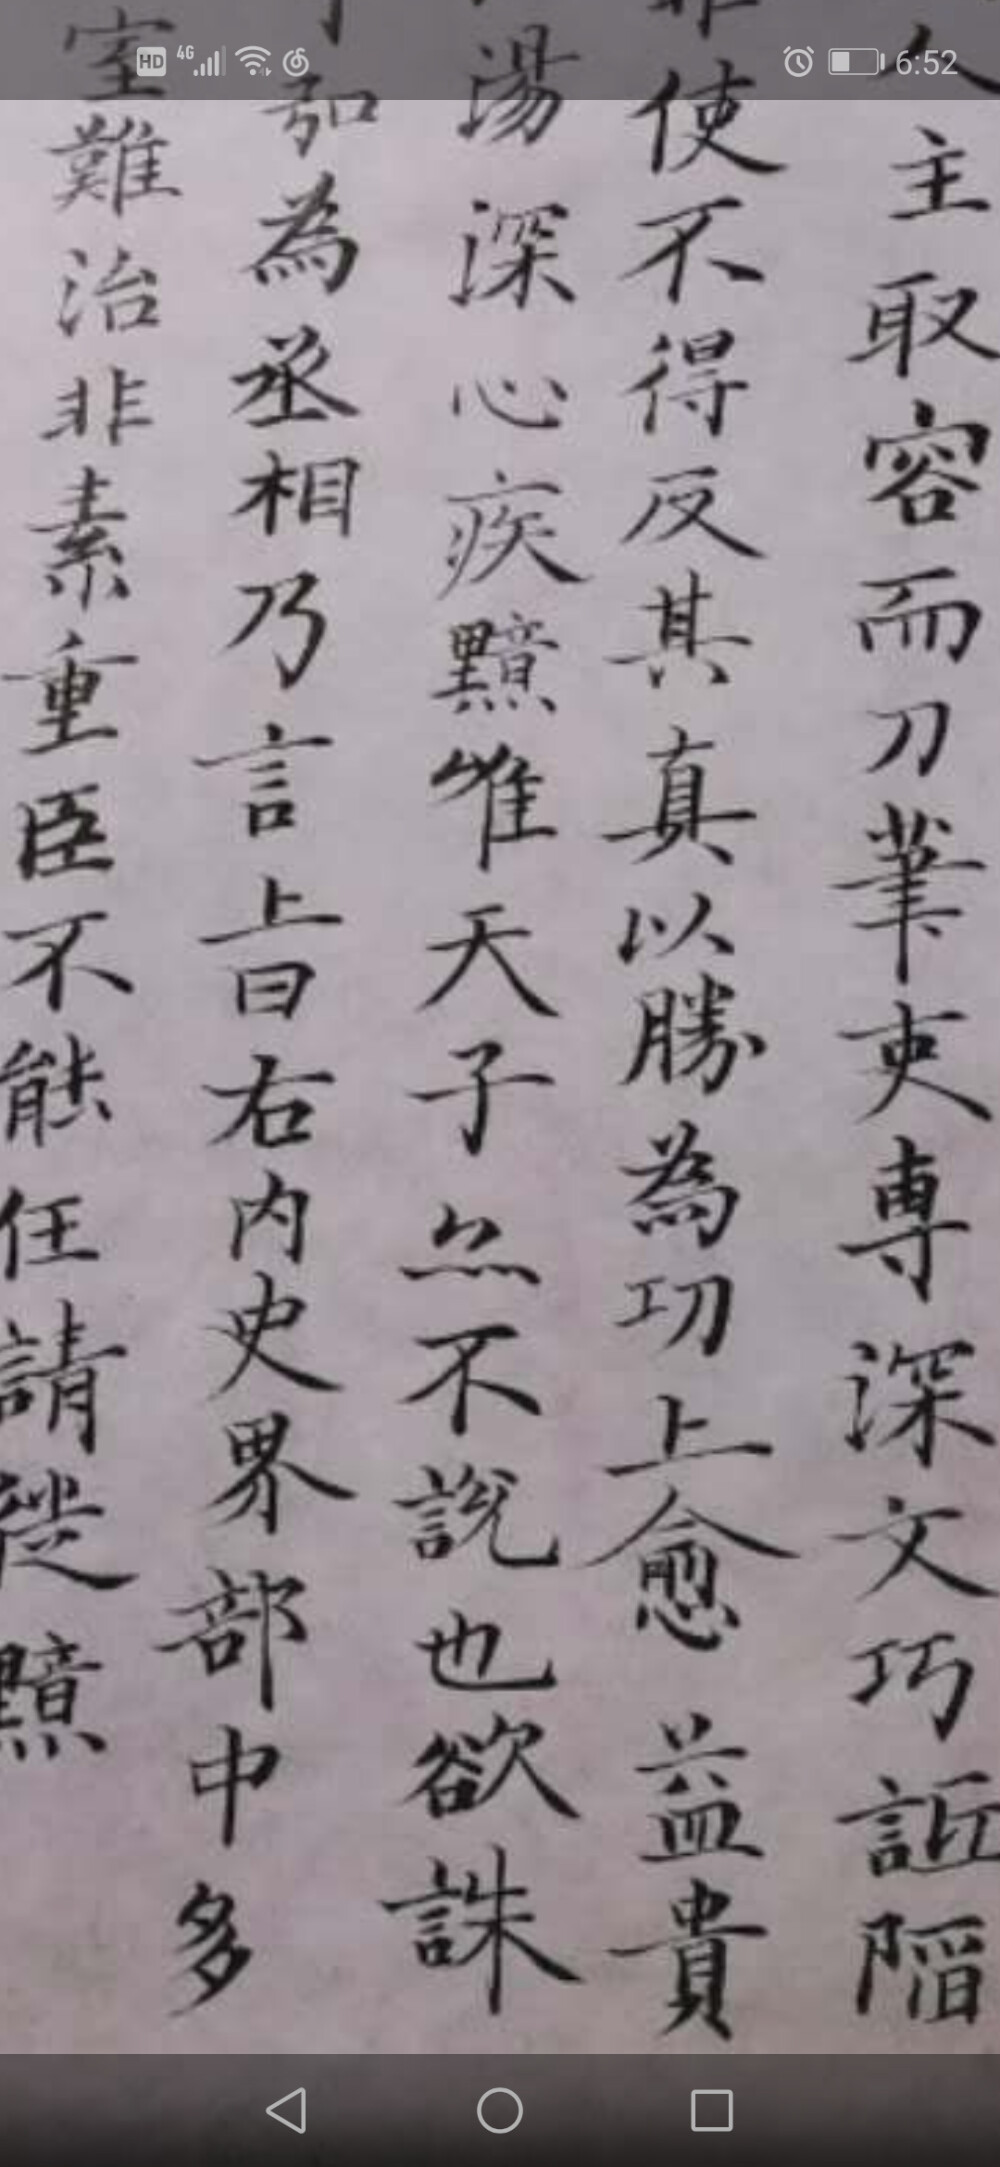 HD 4G 6:52
人主取容而刀筆吏專深文巧詆陷
使不得反其真以勝為功上愈益貴
湯深心疾黯唯天子亦不說也欲誅
弘為丞相乃言上曰右內史界部中多
室難治非素重臣不能任請徙黯